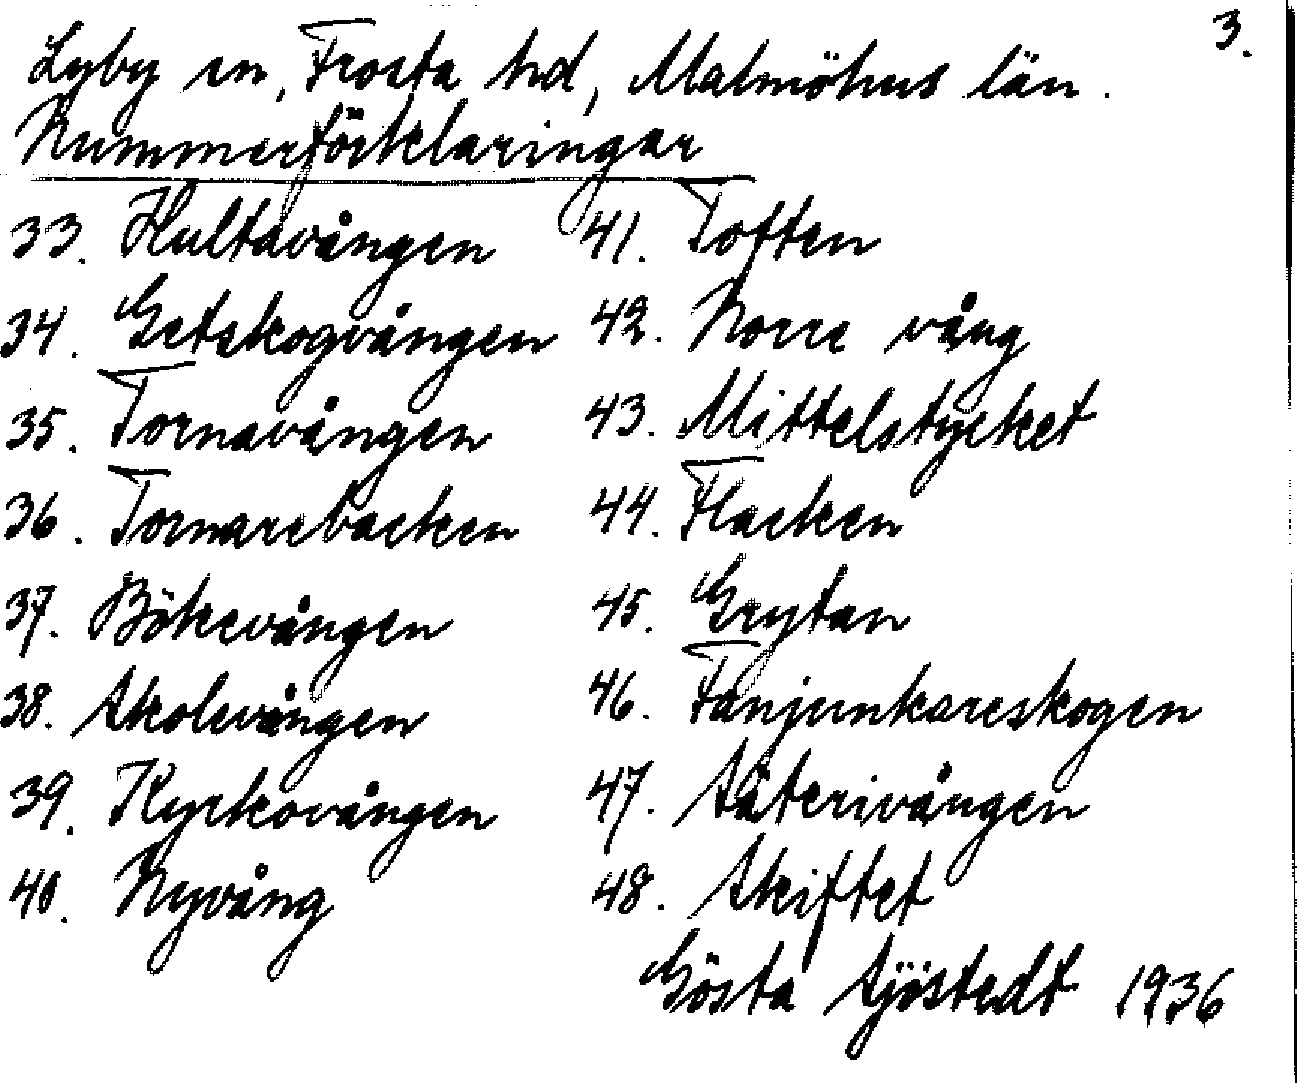 3.
Lyby sn, Frosta hd, Malmöhus län.
Nummerförklaringar
33. Hultavången
34. Getskogvången
35. Tornavången
36. Tornarebacken
37. Bökevången
38. Skolevången
39. Kyrkovången
40. Nyvång
41. Toften
42. Norre vång
43. Mittelstycket
44. Flacken
45. Grytan
46. Fanjunkareskogen
47. Säterivången
48. Skiftet
Gösta Sjöstedt 1936